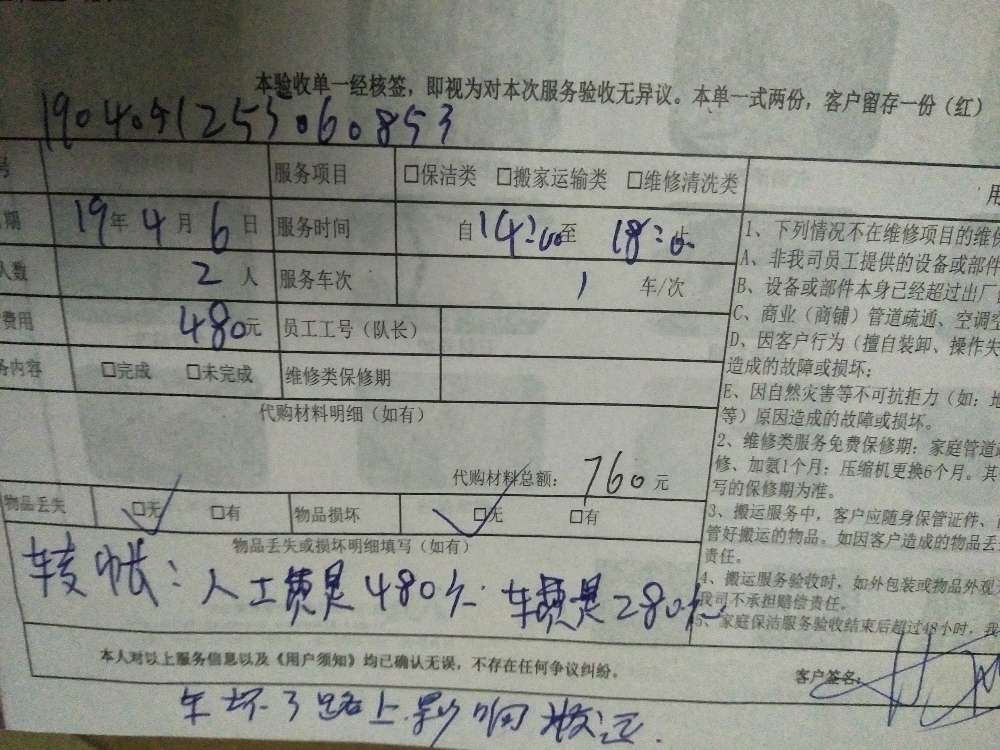 本验收单一经核签，即视为对本次服务验收无异议。本单一式两份，客户留存一份（红）
号 服务项目 □保洁类 □搬家运输类 □维修清洗类 用
期 19年4月6日 服务时间 自14:00至18:00止
人数 2人 服务车次 1车/次
费用 480元 员工工号（队长）
务内容 □完成 □未完成 维修类保修期
代购材料明细（如有）
代购材料总额：760元
物品丢失 □无 □有 物品损坏 □无 □有
物品丢失或损坏明细填写（如有）
转帐：人工费是480元 车费是280元
本人对以上服务信息以及《用户须知》均已确认无误，不存在任何争议纠纷。
客户签名：
车坏了路上影响搬运.
1、下列情况不在维修项目的维修
A、非我司员工提供的设备或部件
B、设备或部件本身已经超过出厂
C、商业（商铺）管道疏通、空调空
D、因客户行为（擅自装卸、操作失
造成的故障或损坏；
E、因自然灾害等不可抗拒力（如：地
等）原因造成的故障或损坏。
2、维修类服务免费保修期：家庭管道疏
修、加氨1个月；压缩机更换6个月。其
写的保修期为准。
3、搬运服务中，客户应随身保管证件、
管好搬运的物品。如因客户造成的物品丢
责任。
4、搬运服务验收时，如外包装或物品外观
我司不承担赔偿责任。
5、家庭保洁服务验收结束后超过48小时，我